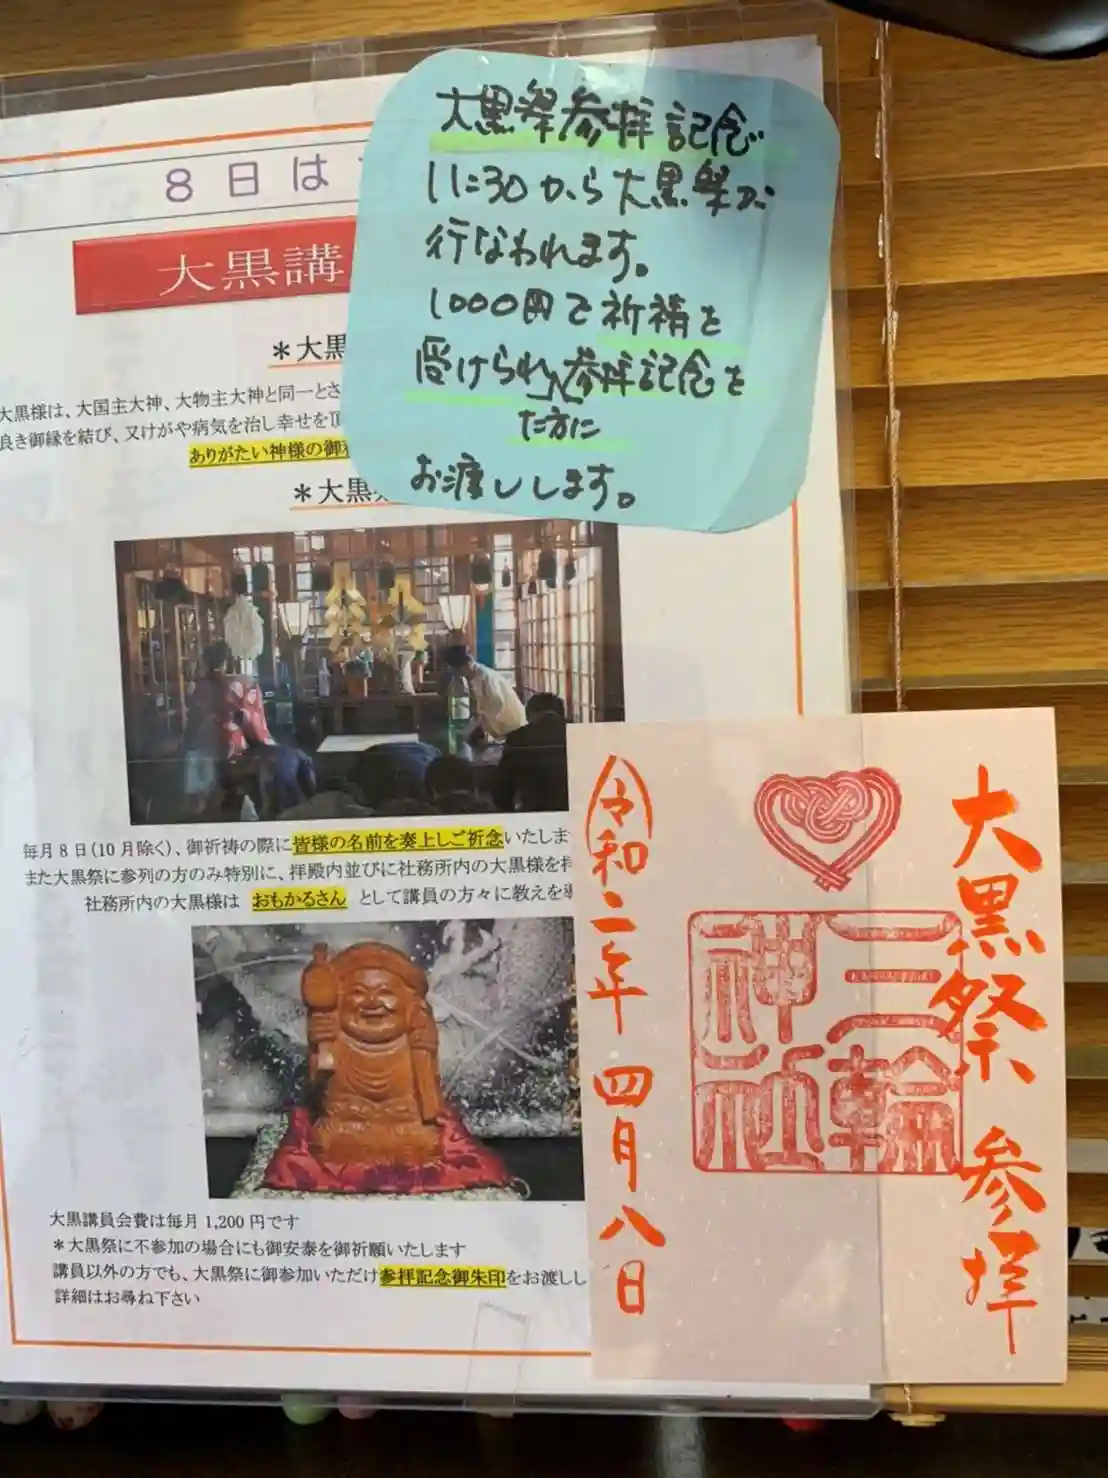 大黒祭参拝記念
11:30から大黒祭が
行なわれます。
1000円で祈祷を
受けられた方に参拝記念を
お渡しします。
8日は
大黒講
＊大黒
大黒様は、大国主大神、大物主大神と同一とさ
良き御縁を結び、又けがや病気を治し幸せを頂
ありがたい神様の御
＊大黒
毎月8日(10月除く)、御祈祷の際に皆様の名前を奏上しご祈念いたしま
また大黒祭に参列の方のみ特別に、拝殿内並びに社務所内の大黒様を拝
社務所内の大黒様は おもかるさん として講員の方々に教えを導
大黒講員会費は毎月1,200円です
＊大黒祭に不参加の場合にも御安泰を御祈願いたします
講員以外の方でも、大黒祭に御参加いただけ参拝記念御朱印をお渡しし
詳細はお尋ね下さい
大黒祭 参拝
三輪
神社
令和二年 四月八日